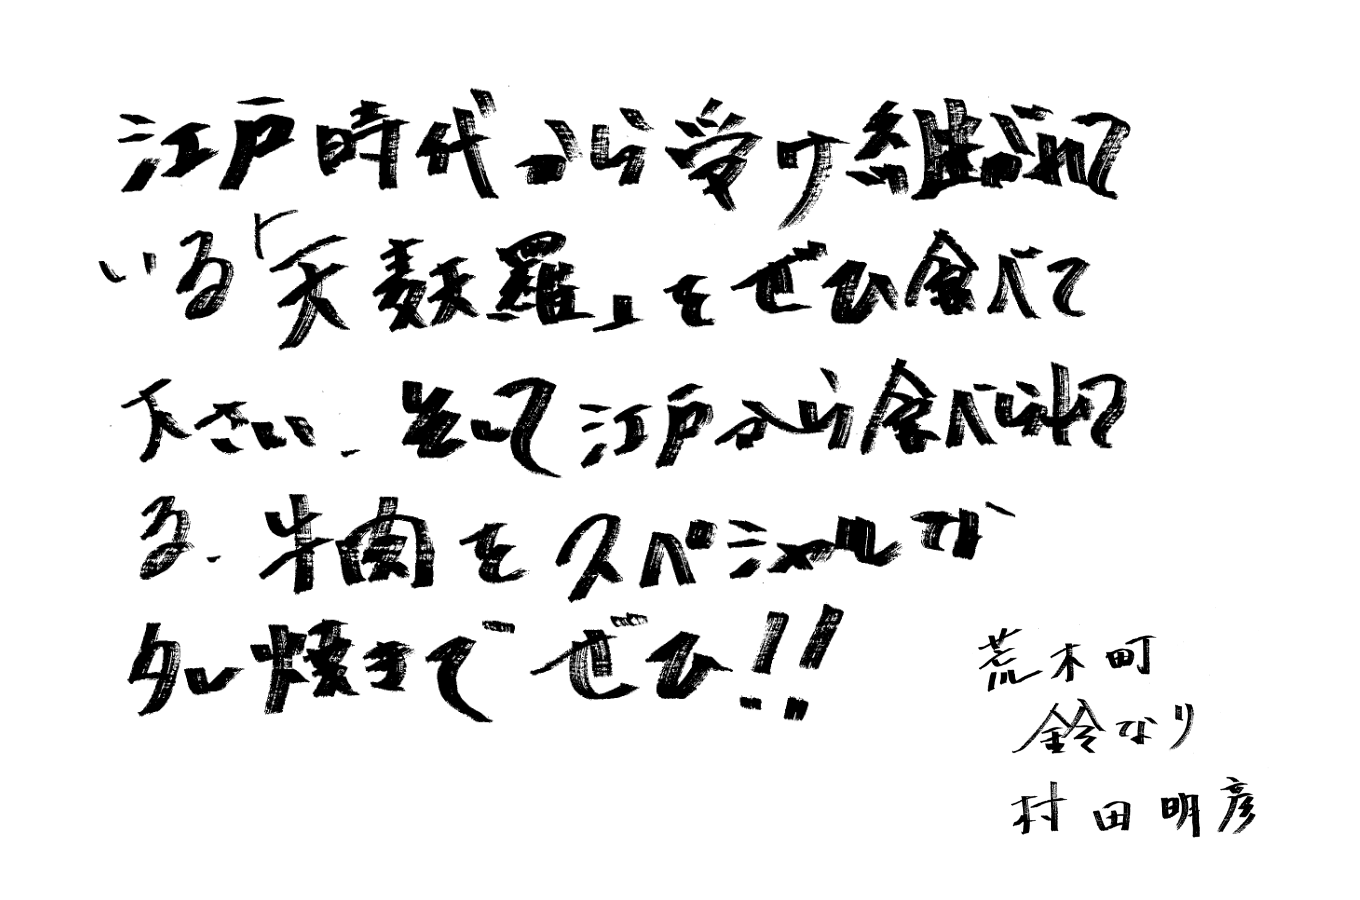 江戸時代から受け継がれて
いる「天麩羅」をぜひ食べて
下さい、そして江戸から食べられて
る、牛肉をスペシャルな
タレ焼きでぜひ!!
荒木町
鈴なり
村田明彦